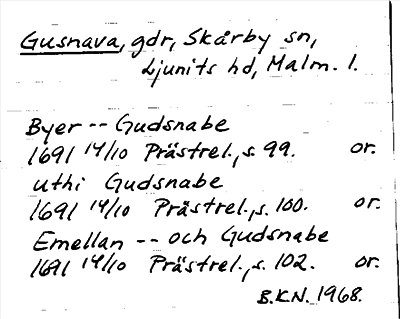 Gusnava, gdr, Skårby sn,
Ljunits hd, Malm. l.
Byer -- Gudsnabe
1691 14/10 Prästrel., s. 99. or.
uthi Gudsnabe
1691 14/10 Prästrel., s. 100. or.
Emellan -- och Gudsnabe
1691 14/10 Prästrel., s. 102. or.
B.K.N. 1968.